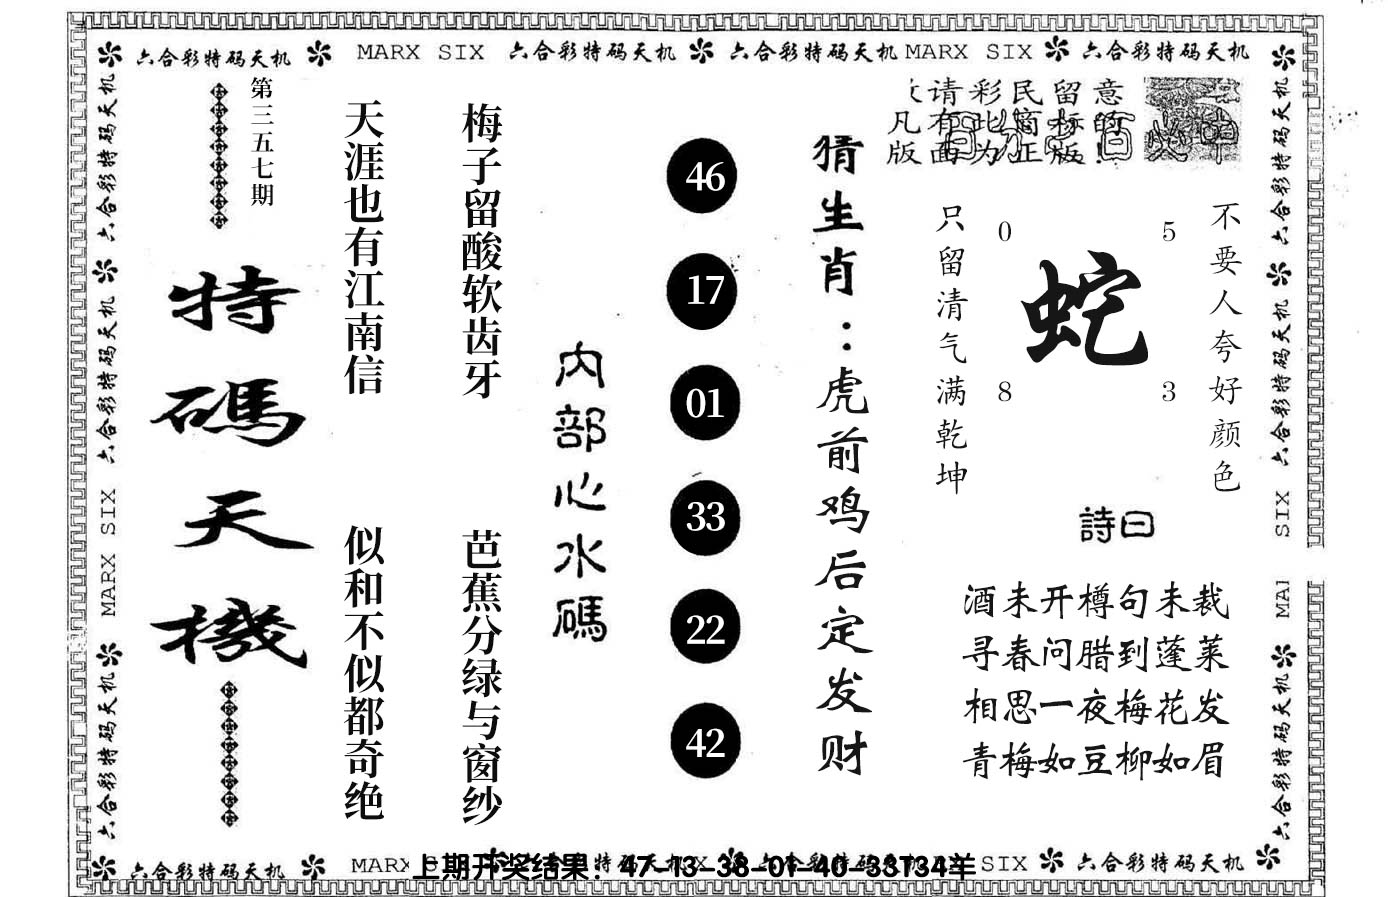 六合彩特码天机 MARX SIX 六合彩特码天机 六合彩特码天机 MARX SIX 六合彩特码天机
六合彩特码天机
六合彩特码天机
MARX SIX
六合彩特码天机
第三五七期
特碼天機
天涯也有江南信
似和不似都奇绝
梅子留酸软齿牙
芭蕉分绿与窗纱
内部心水碼
46
17
01
33
22
42
猜生肖：虎前鸡后定发财
请彩民留意
凡有此窗标的
版面为正版!
只留清气满乾坤
0
5
蛇
8
3
不要人夸好颜色
詩曰
酒未开樽句未裁
寻春问腊到蓬莱
相思一夜梅花发
青梅如豆柳如眉
六合彩特码天机
六合彩特码天机
SIX
MA
六合彩特码天机
六合彩特码天机 MARX
上期开奖结果：47-13-38-01-40-33T34羊
SIX 六合彩特码天机